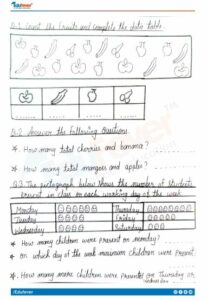 Edufever
Q.1 Count the fruits and complete the data table.
Q.2 Answer the following questions.
* How many total cherries and banana?
* How many total mangoes and apples?
Q.3 The pictograph below shows the number of students
present in class on each working day of the week
Monday Thursday
Tuesday Friday
Wednesday Saturday
* How many children were present on monday?
* On which day of the week maximum children were present
* How many more children were present on Thursday or